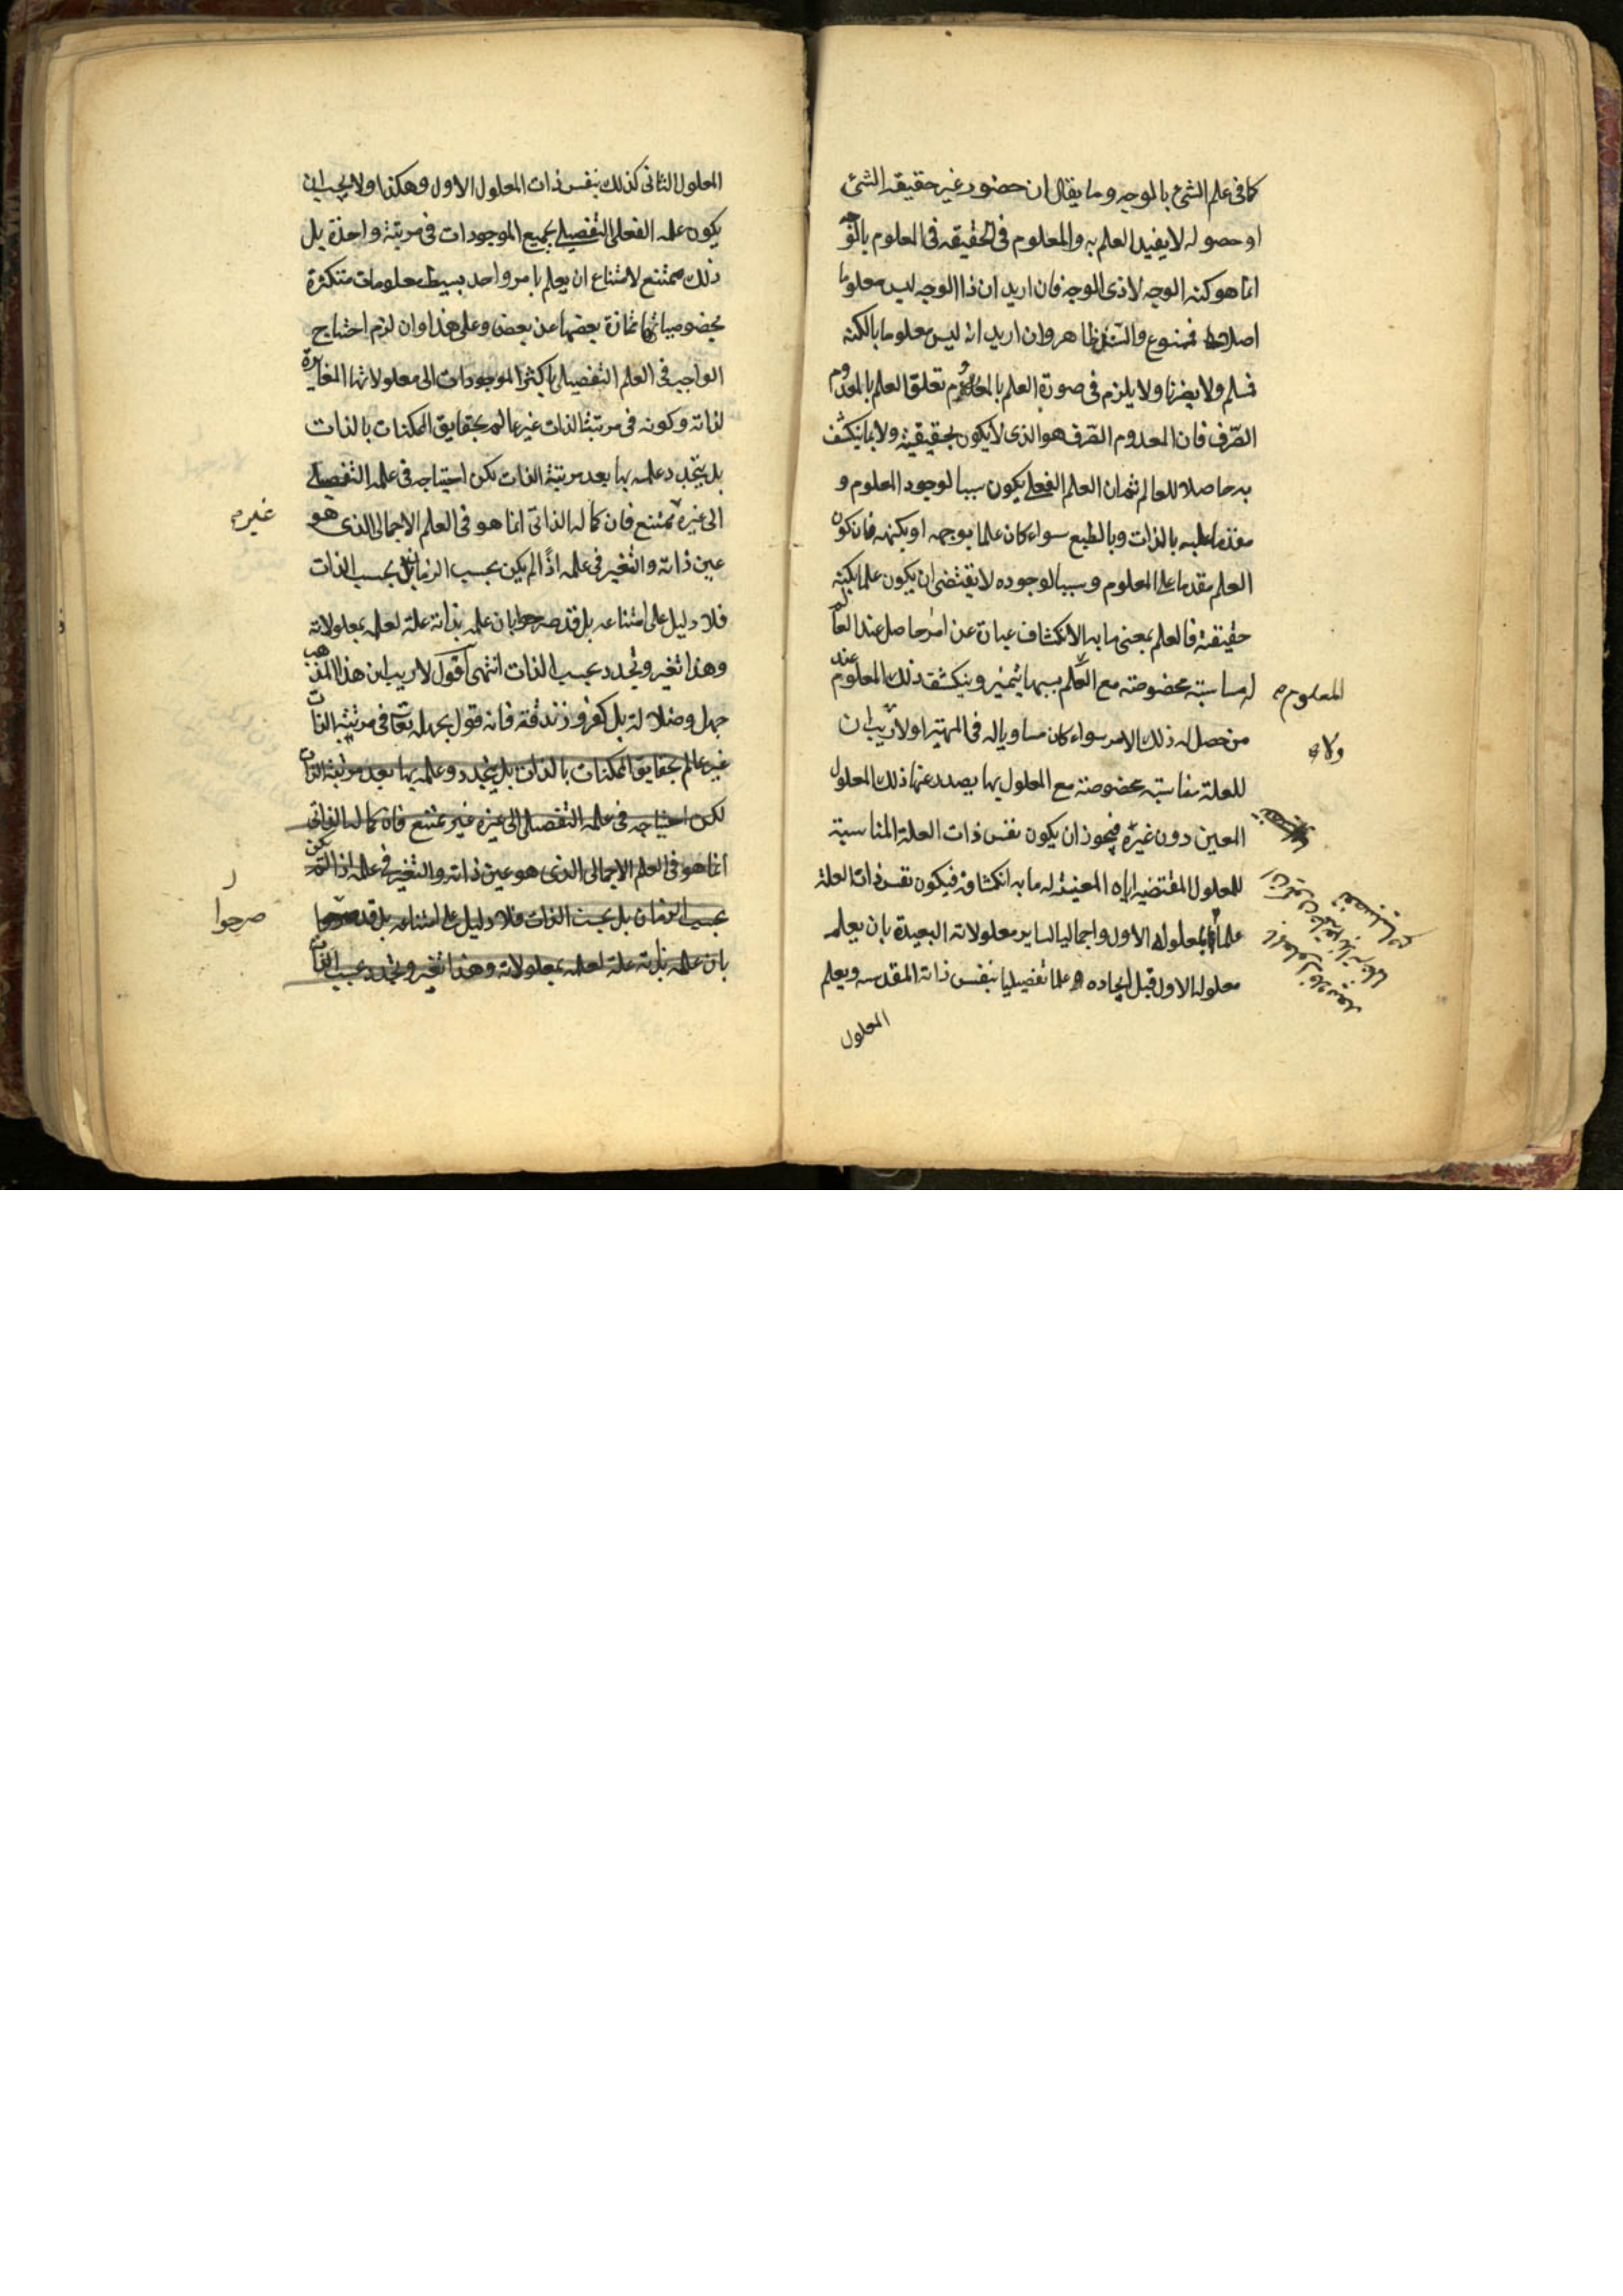 كما فى علم الشئ بالوجه وما يقال ان حضور غير حقيقة الشئ
او حصوله لا يفيد العلم به والمعلوم فى الحقيقه فى العلوم بالوجه
انما هو كنه الوجه لا ذى الوجه فان اريد ان ذا الوجه ليس معلوما
اصلا فممنوع والسند ظاهر وان اريد انه ليس معلوما بالكنه
فمسلم ولا يضرنا ولا يلزم فى صورة العلم بالمعدوم تعلق العلم بالمعدوم
الصّرف فان المعدوم الصّرف هو الذى لا يكون بحقيقته ولا بما ينكشف
به حاصلا للعالم ثم ان العلم الفعلى يكون سببا لوجود المعلوم و
مقدما عليه بالذات وبالطبع سواء كان علما بوجهه او بكنهه فان كون
العلم مقدما على المعلوم وسببا لوجوده لا يقتضى ان يكون علما بكنه
حقيقته فالعلم بمعنى ما به الانكشاف عبارة عن امر حاصل عند العالم
له مناسبته مخصوصته مع العلم بسببها يتميز وينكشف ذلك المعلوم عند
المعلوم
من حصل له ذلك الامر سواء كان مساويا له فى المهية او لا ريب ان
ولا
للعلة مناسبته مخصوصته مع المعلول بها يصدر عنها ذلك المعلول
المعين دون غيره فيجوز ان يكون نفس ذات العلة المناسبة
للمعلول المقتضيه اياه المعينة له ما به انكشافه فيكون نفس ذات العلة
علما بمعلوله الاول واجماليا لساير معلولاته البعيدة بان يعلم
معلوله الاول قبل ايجاده علما تفصيليا بنفس ذاته المقدسه ويعلم
المعلول
المعلول الثانى كذلك بنفس ذات المعلول الاول وهكذا ولا يجب ان
يكون علمه الفعلى التفصيلى بجميع الموجودات فى مرتبة واحدة بل
ذلك ممتنع لامتناع ان يعلم بامر واحد بسيط معلومات متكثرة
بخصوصياتها ممتازة بعضها عن بعض وعلى هذا وان لزم احتياج
الواجب فى العلم التفصيلى باكثر الموجودات الى معلولاتها المغايرة
لذاته وكونه فى مرتبة الذات غير عالم بحقايق الممكنات بالذات
بل يتجدد علمه بها بعد مرتبة الذات لكن احتياجه فى علمه التفصيلى
الى غيره ممتنع فان كماله الذاتى انما هو فى العلم الاجمالى الذى هو
غير
عين ذاته والتغير فى علمه اذا لم يكن بحسب الزمان بل بحسب الذات
فلا دليل على امتناعه بل قد صرحوا بان علمه بذاته علة لعلمه بمعلولاته
وهذا تغير وتجدد بحسب الذات انتهى اقول لا ريب ان هذا المذهب
جهل وضلالة بل كفر وزندقة فانه قول بجهله تعا فى مرتبة الذات
غير عالم بحقايق الممكنات بالذات بل يتجدد وعلمه بها بعد مرتبة الذات
لكن احتياجه فى علمه التفصيلى الى غيره غير ممتنع فان كماله الذاتى
انما هو فى العلم الاجمالى الذى هو عين ذاته والتغير فى علمه اذا لم يكن
بحسب الزمان بل بحسب الذات فلا دليل على امتناعه بل قد صرحوا
صرحوا
بان علمه بذاته علة لعلمه بمعلولاته وهذا تغير وتجدد بحسب الذات